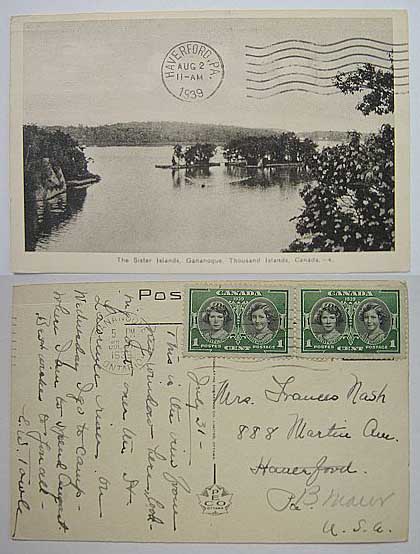 HAVERFORD, PA.
AUG 2
11-AM
1939
The Sister Islands, Gananoque, Thousand Islands, Canada.—4.
POS
CANADA
1939
1 CENT POSTES POSTAGE CENT 1
CANADA
1939
1 CENT POSTES POSTAGE CENT 1
July 31-
This is the view from
my window here, look-
ing over the St.
Lawrence river. On
Wednesday I go to camp
where I am to spend August
Best wishes to you all -
E.W. Towle
PECO
Mrs. Frances Nash
888 Martin Ave.
Haverford.
Pa.
U.S.A.